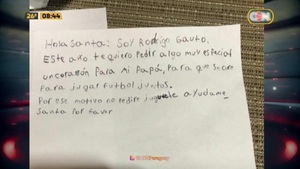 26°
08:44
Hola Santa: Soy Rodrigo Gauto,
Este año te quiero pedir algo muy especial
un corazón para Mi Papá, para que se cure
para jugar Futbol juntos.
Por ese motivo no pedire juguete ayudame
Santa Por favor